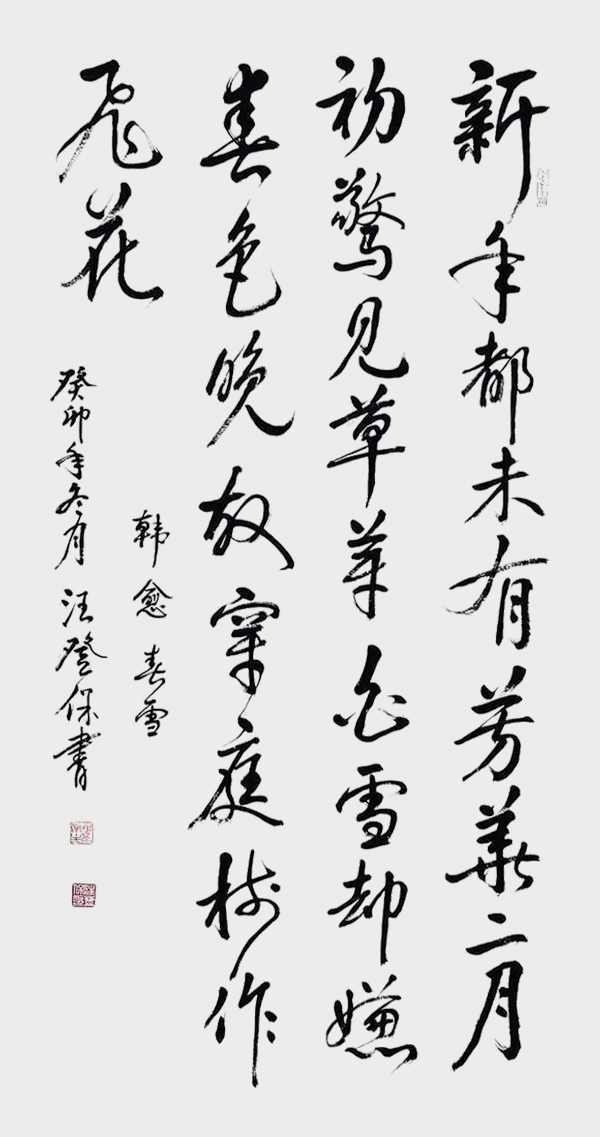 新年都未有芳華二月
初驚見草芽白雪却嫌
春色晚故穿庭樹作
飛花
韓愈春雪
癸卯年冬月汪登保書